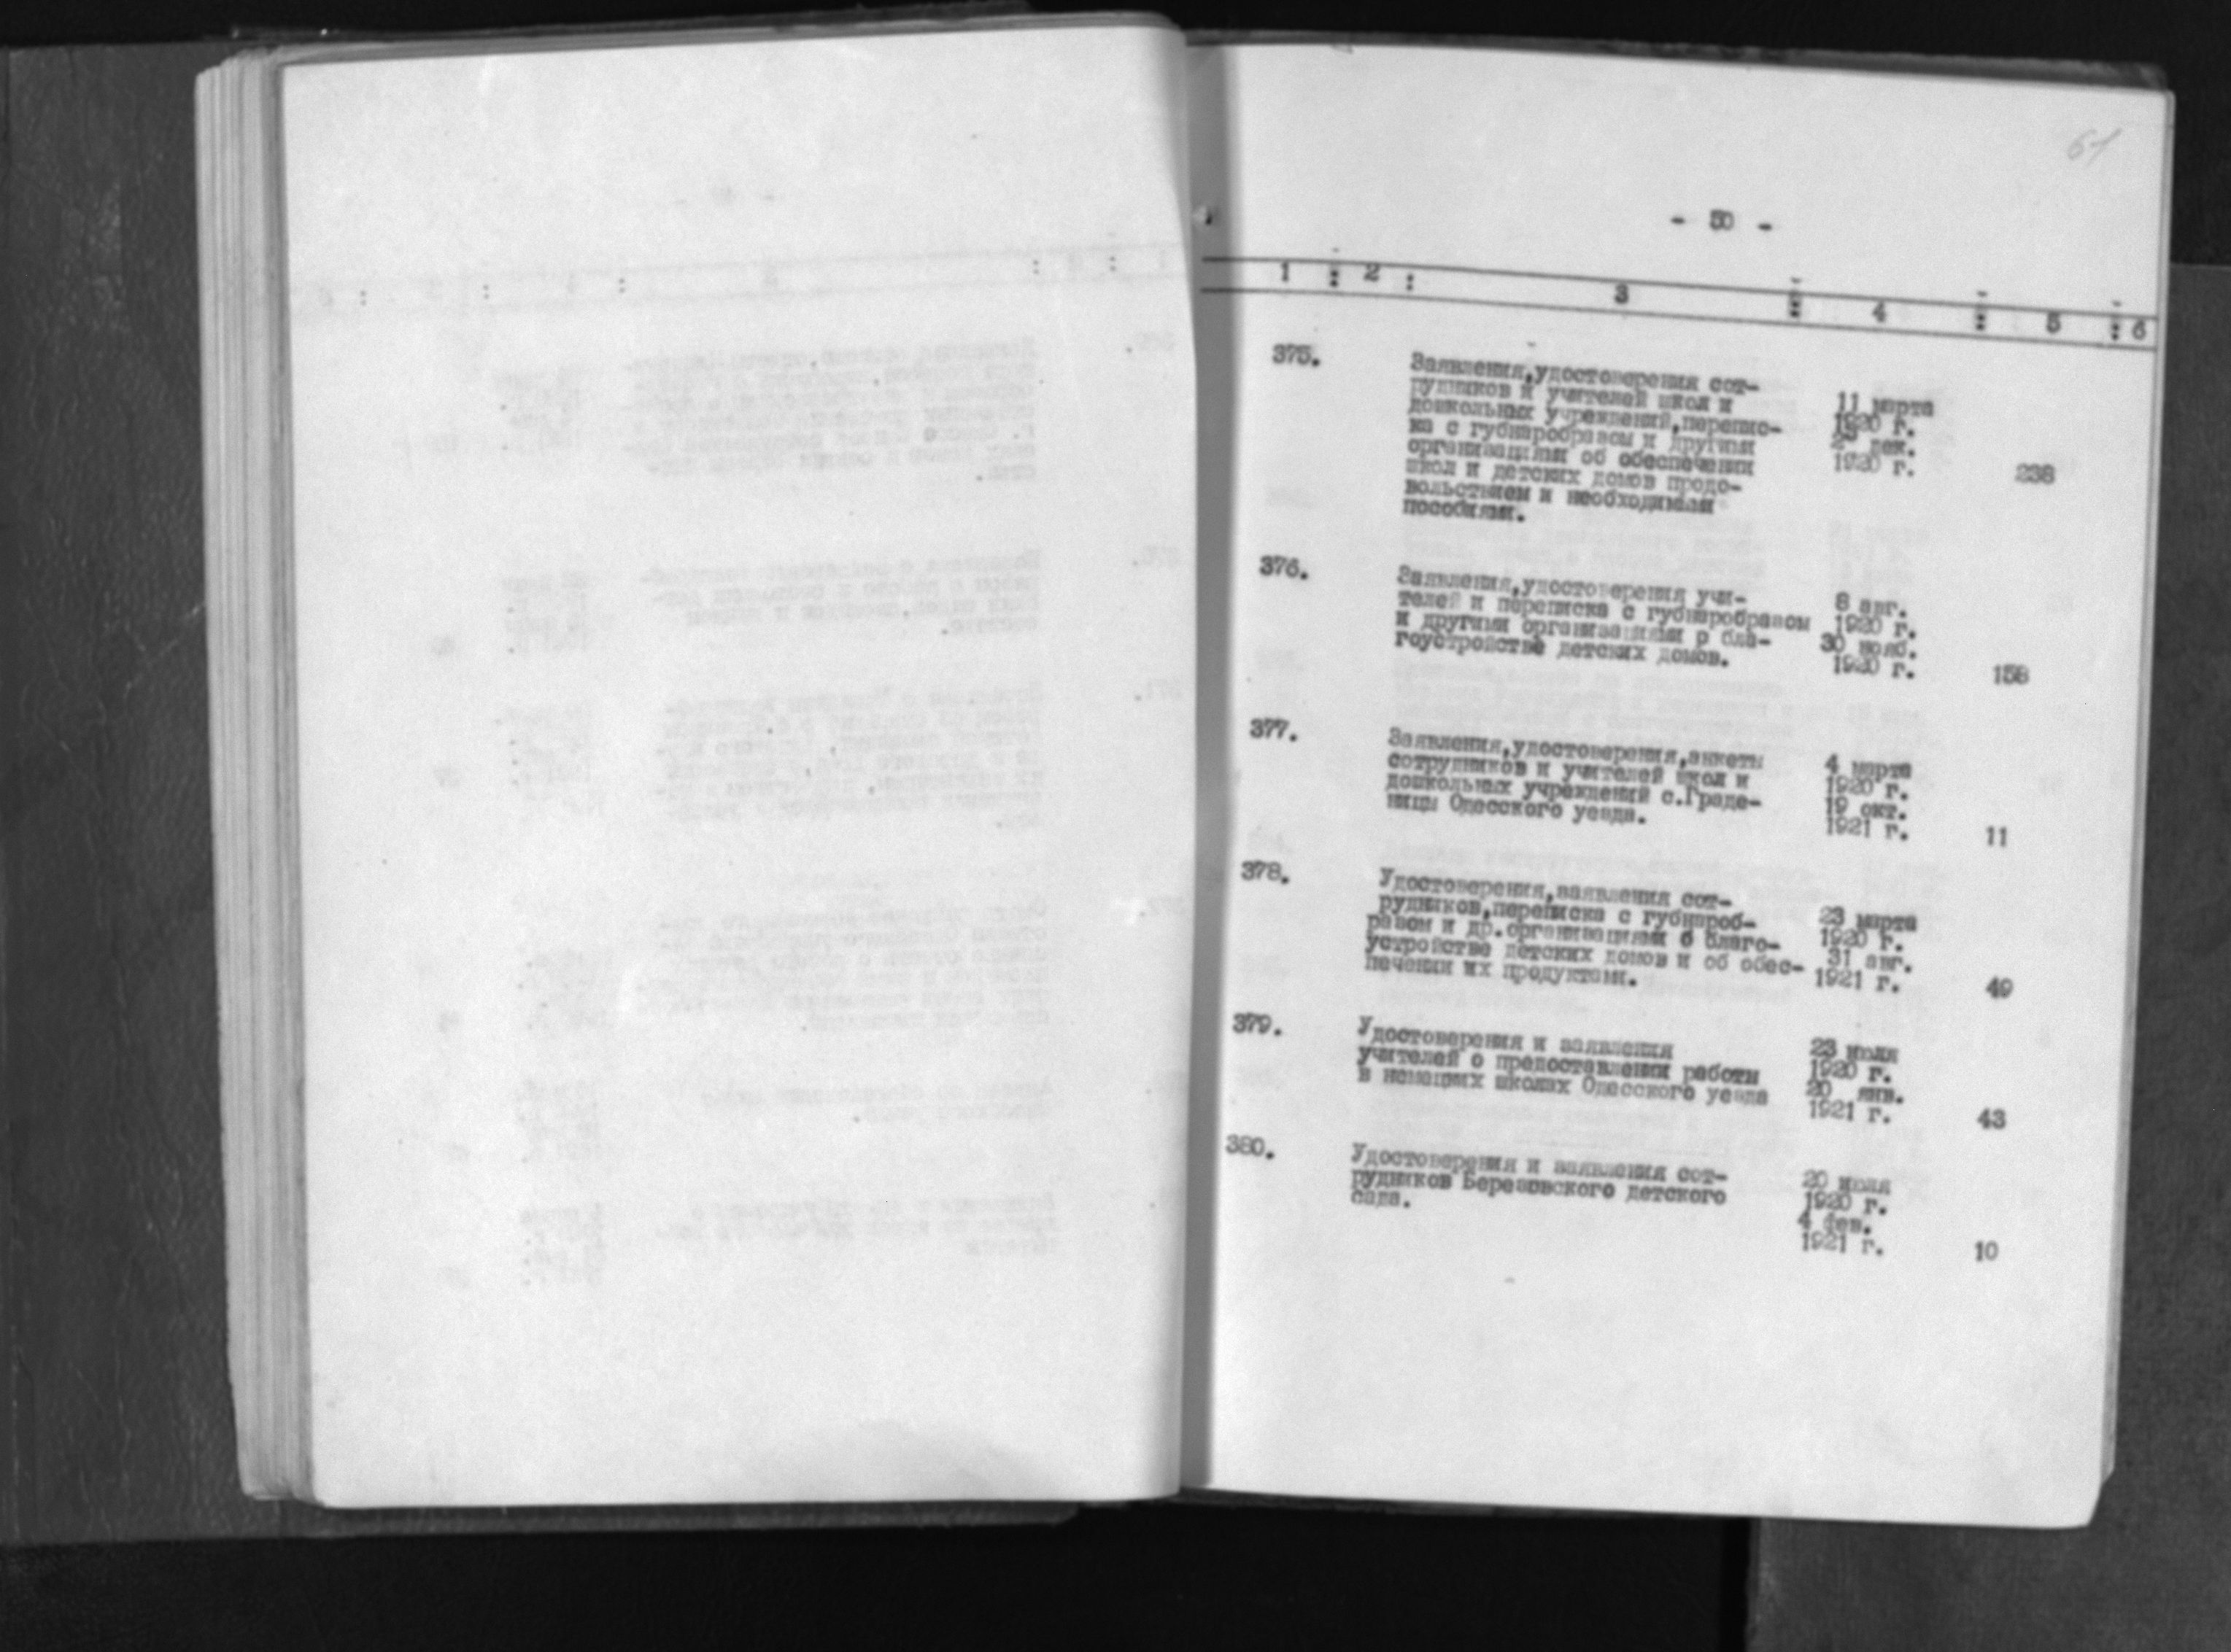 61
- 50 -
1 : 2 : 3 : 4 : 5 : 6
375.
Заявления,удостоверения сот-
рудников и учителей школ и
дошкольных учреждений,перепис-
ка с губнаробразом и другими
организациями об обеспечении
школ и детских домов продо-
вольствием и необходимыми
пособиями.
11 марта
1920 г.
дек.
1920 г.
238
376.
Заявления,удостоверения учи-
телей и переписка с губнаробразом
и другими организациями о бла-
гоустройстве детских домов.
8 авг.
1920 г.
30 нояб.
1920 г.
158
377.
Заявления,удостоверения,анкеты
сотрудников и учителей школ и
дошкольных учреждений с.Граде-
ницы Одесского уезда.
4 марта
1920 г.
19 окт.
1921 г.
11
378.
Удостоверения,заявления сот-
рудников,переписка с губнароб-
разом и др.организациями о благо-
устройстве детских домов и об обес-
печении их продуктами.
23 марта
1920 г.
31 авг.
1921 г.
49
379.
Удостоверения и заявления
учителей о предоставлении работы
в немецких школах Одесского уезда
23 июля
1920 г.
20 янв.
1921 г.
43
380.
Удостоверения и заявления сот-
рудников Березовского детского
сада.
20 июля
1920 г.
4 фев.
1921 г.
10